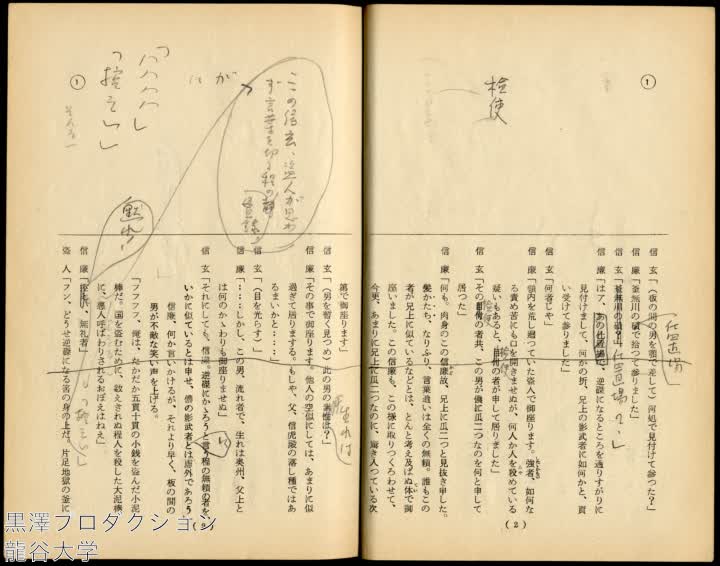 ①
検使
「仕置場」
信 玄「(板の間の男を顎で差して)何処で見付けて参つた?」
信 廉「釜無川の磧で拾つて参りました」
信 玄「釜無川の磧?」
仕置場の、」
信 廉「はア、あの仕置場で、逆礎になるところを通りすがりに
見付けまして、何かの折、兄上の影武者に如何かと、貰
い受けて参りました」
信 玄「何者じや」
信 廉「領内を荒し廻つていた盗人で御座ります。強者、如何な
る責め苦にも口を開きませぬが、何人か人を殺めている
疑いもあると、
の者が申して居りました」
信 玄「その
の者共、この男が儂に瓜二つなのを何と申して
居つた」
信 廉「何も。肉身のこの信廉故、兄上に瓜二つと見抜き申した。
髪かたち、なりふり、言葉遣いは全くの無頼。誰もこの
者が兄上に似ているなどとは、とんと考え及ばぬ体で御
座いました。この信廉も、この様に取りつくろわせて、
今更、あまりに兄上に瓜二つなのに、驚き入つている次
(2)
①
「ハハハハ」
「控えい」
が
に
この信玄、盗人が思わ
ず言葉を切る程の
黙れ!
第で御座ります」
信 玄「(男を暫く見つめ)此の男の素性は?」
生れは
信 廉「その事で御座ります。他人の空似にしては、あまりに似
過ぎて居りまする。もしや、父、信虎殿の落し種ではあ
るまいかと‥‥」
信 玄「(目を光らす)」
信 廉「‥‥しかし、この男、流れ者で、生れは奥州、父上と
は何のかゝわりも御座りませぬ」
信 玄「それにしても、信廉。逆礎にかゝろうと言う程の無頼の者を、
いかに似ているとは申せ、儂の影武者とは慮外であろう」
信廉、何か言いかけるが、それより早く、板の間の
男が不敵な笑い声を上げる。
「フフフフ、俺は、たかだか五貫十貫の小銭を盗んだ小泥
棒だ。国を盗むために、数えきれぬ程人を殺した大泥棒
に、悪人呼ばわりされるおぼえはねえ」
「控えい」
信 廉「控えい、無礼者」
盗 人「フン、どうせ逆礎になる筈の身の上だ。片足地獄の釜に
黒澤プロダクション
龍谷大学